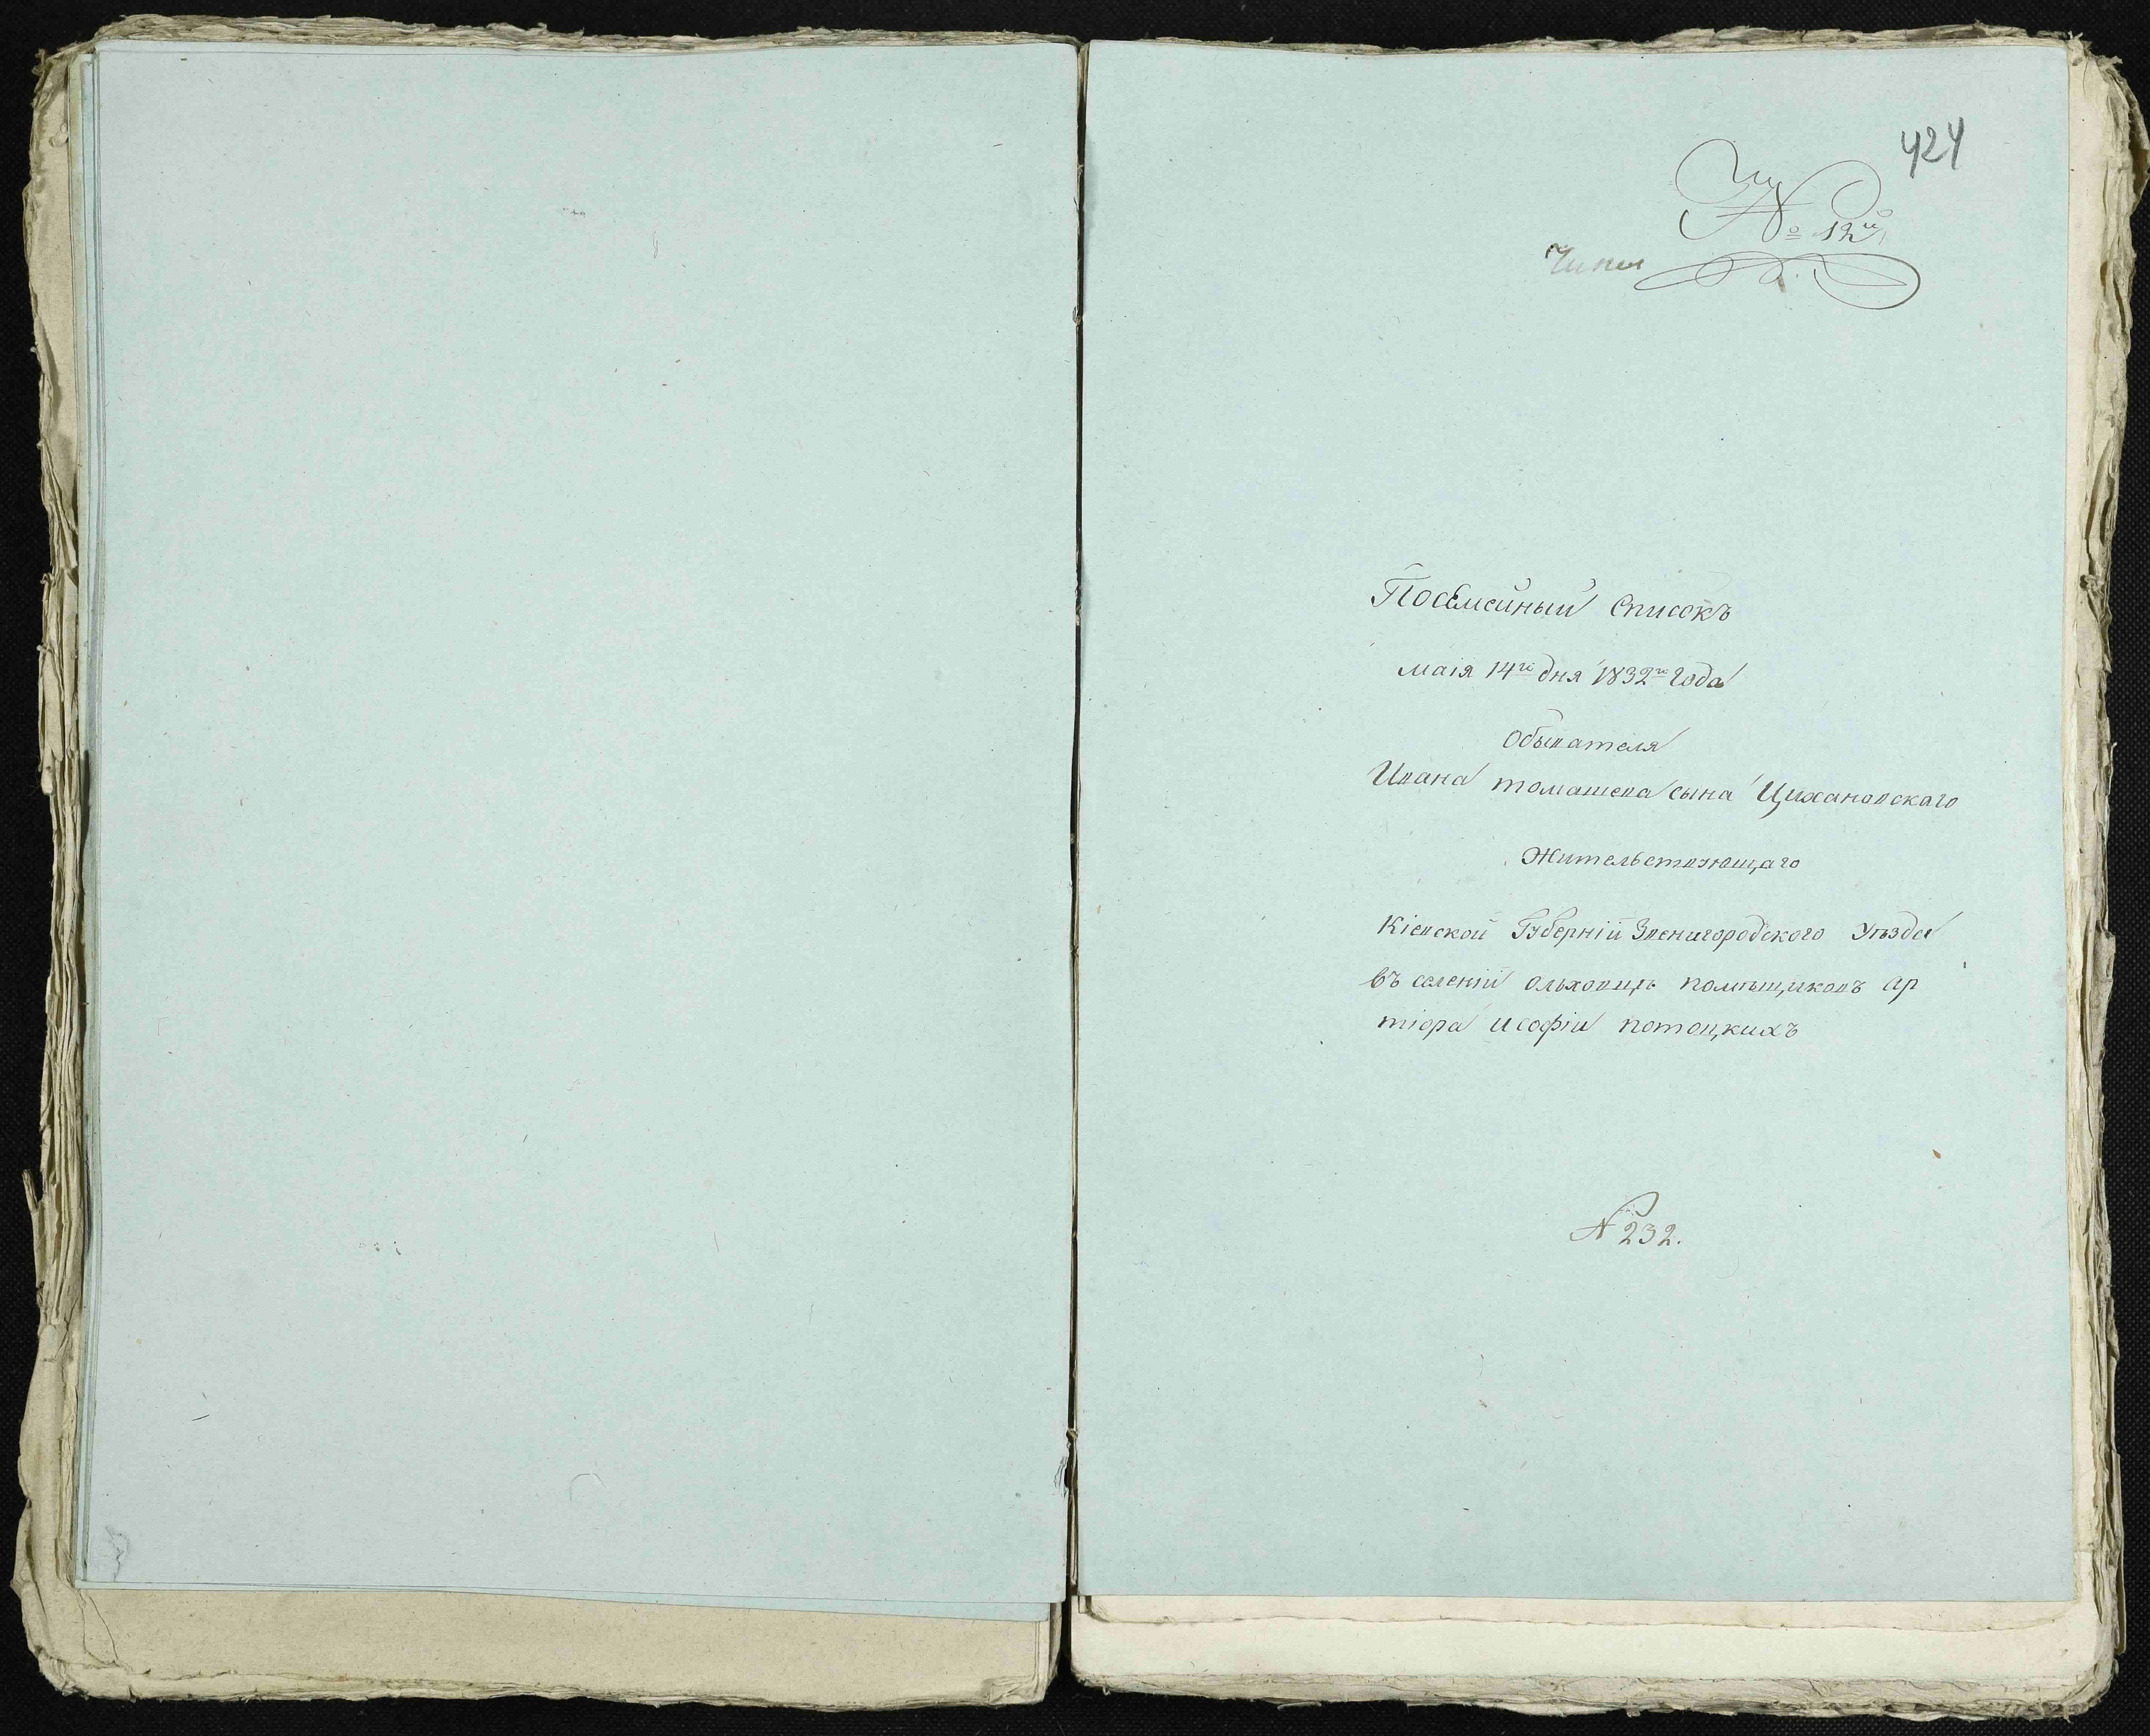 424
№ 12й
Посемейный Списокъ
маія 14го дня 1832го года
Обывателя
Ивана томашева сына Цихановскаго
Жительствующаго
Кіевской Губерніи Звенигородского Уѣзда
Въ селеніи ольховцѣ помѣщиковъ ар
тюра исофіи потоцкихъ
N 232.